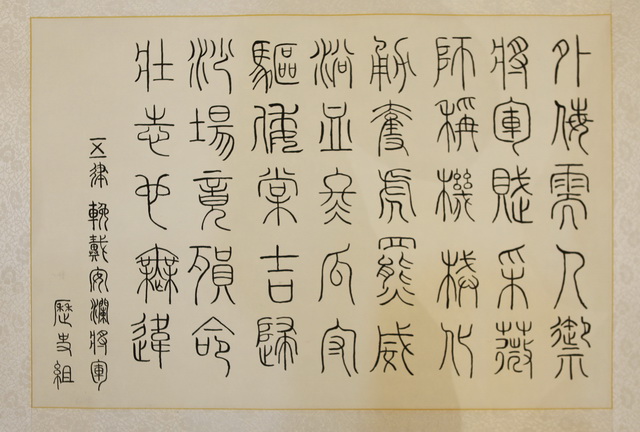 外侮需人禦
將軍賦采薇
師稱機械化
勇奪虎羆威
浴血冬瓜守
驅倭棠吉歸
沙場竟殞命
壯志也無違
五律 輓戴安瀾將軍
歷史組